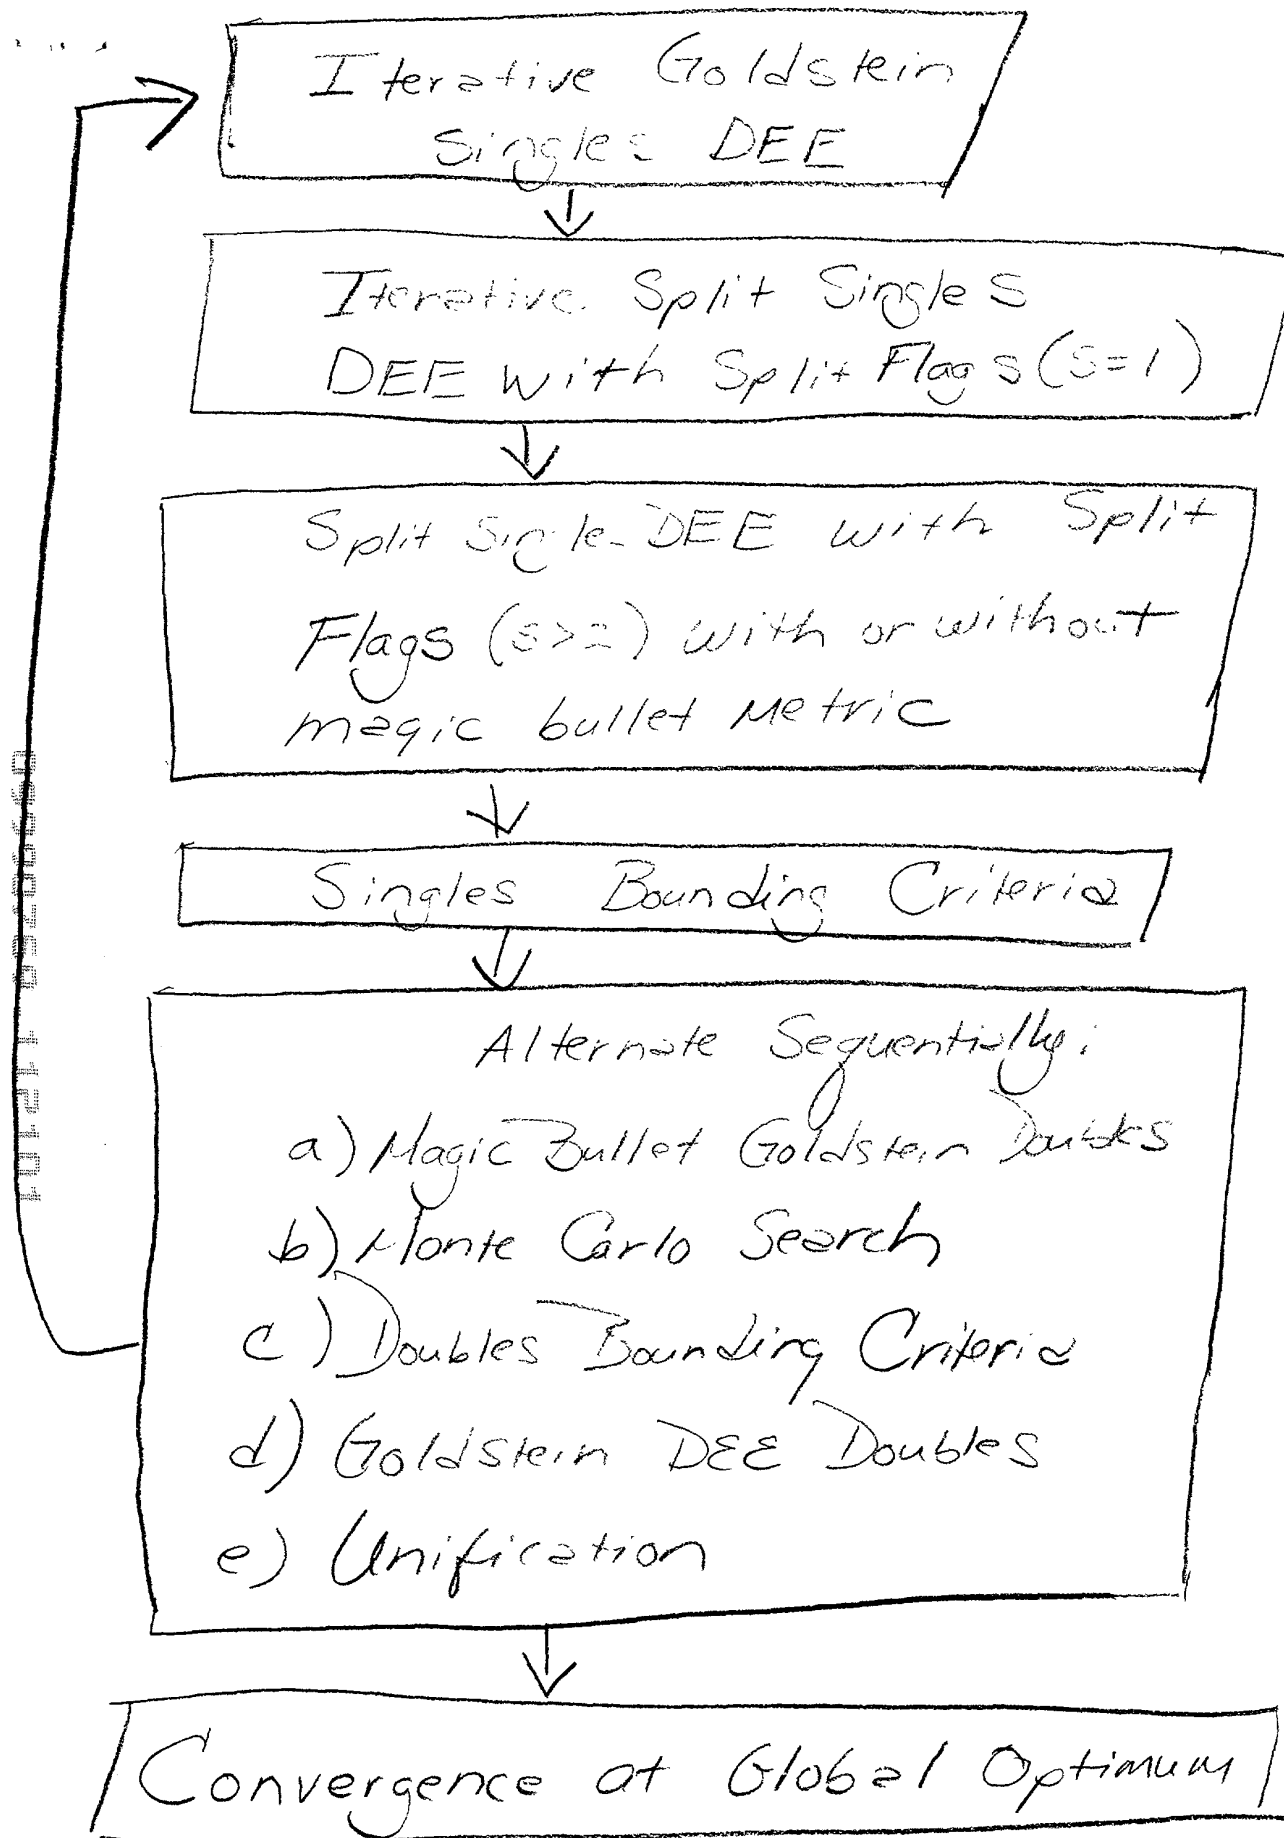 Iterative Goldstein
Singles DEE
Iterative Split Singles
DEE with Split Flags (s=1)
Split Single DEE with Split
Flags (s>2) with or without
magic bullet Metric
Singles Bounding Criteria
Alternate Sequentially:
a) Magic Bullet Goldstein Doubles
b) Monte Carlo Search
c) Doubles Bounding Criteria
d) Goldstein DEE Doubles
e) Unification
Convergence at Global Optimum